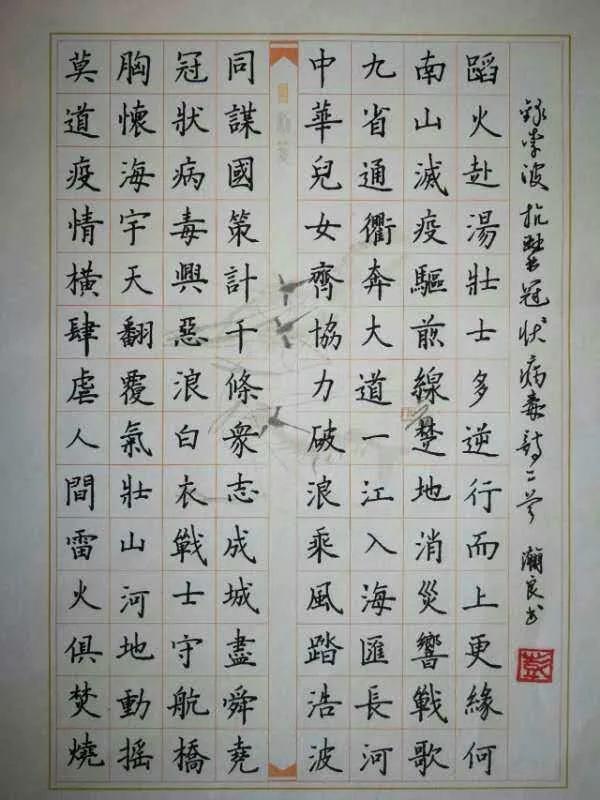 録李波抗擊冠状病毒詩二首 瀚良书
彭
蹈火赴湯壯士多逆行而上更緣何
南山滅疫驅前線楚地消災響戰歌
九省通衢奔大道一江入海匯長河
中華兒女齊協力破浪乘風踏浩波
同謀國策計千條衆志成城盡舜堯
冠狀病毒興惡浪白衣戰士守航橋
胸懷海宇天翻覆氣壯山河地動摇
莫道疫情橫肆虐人間雷火俱焚燒